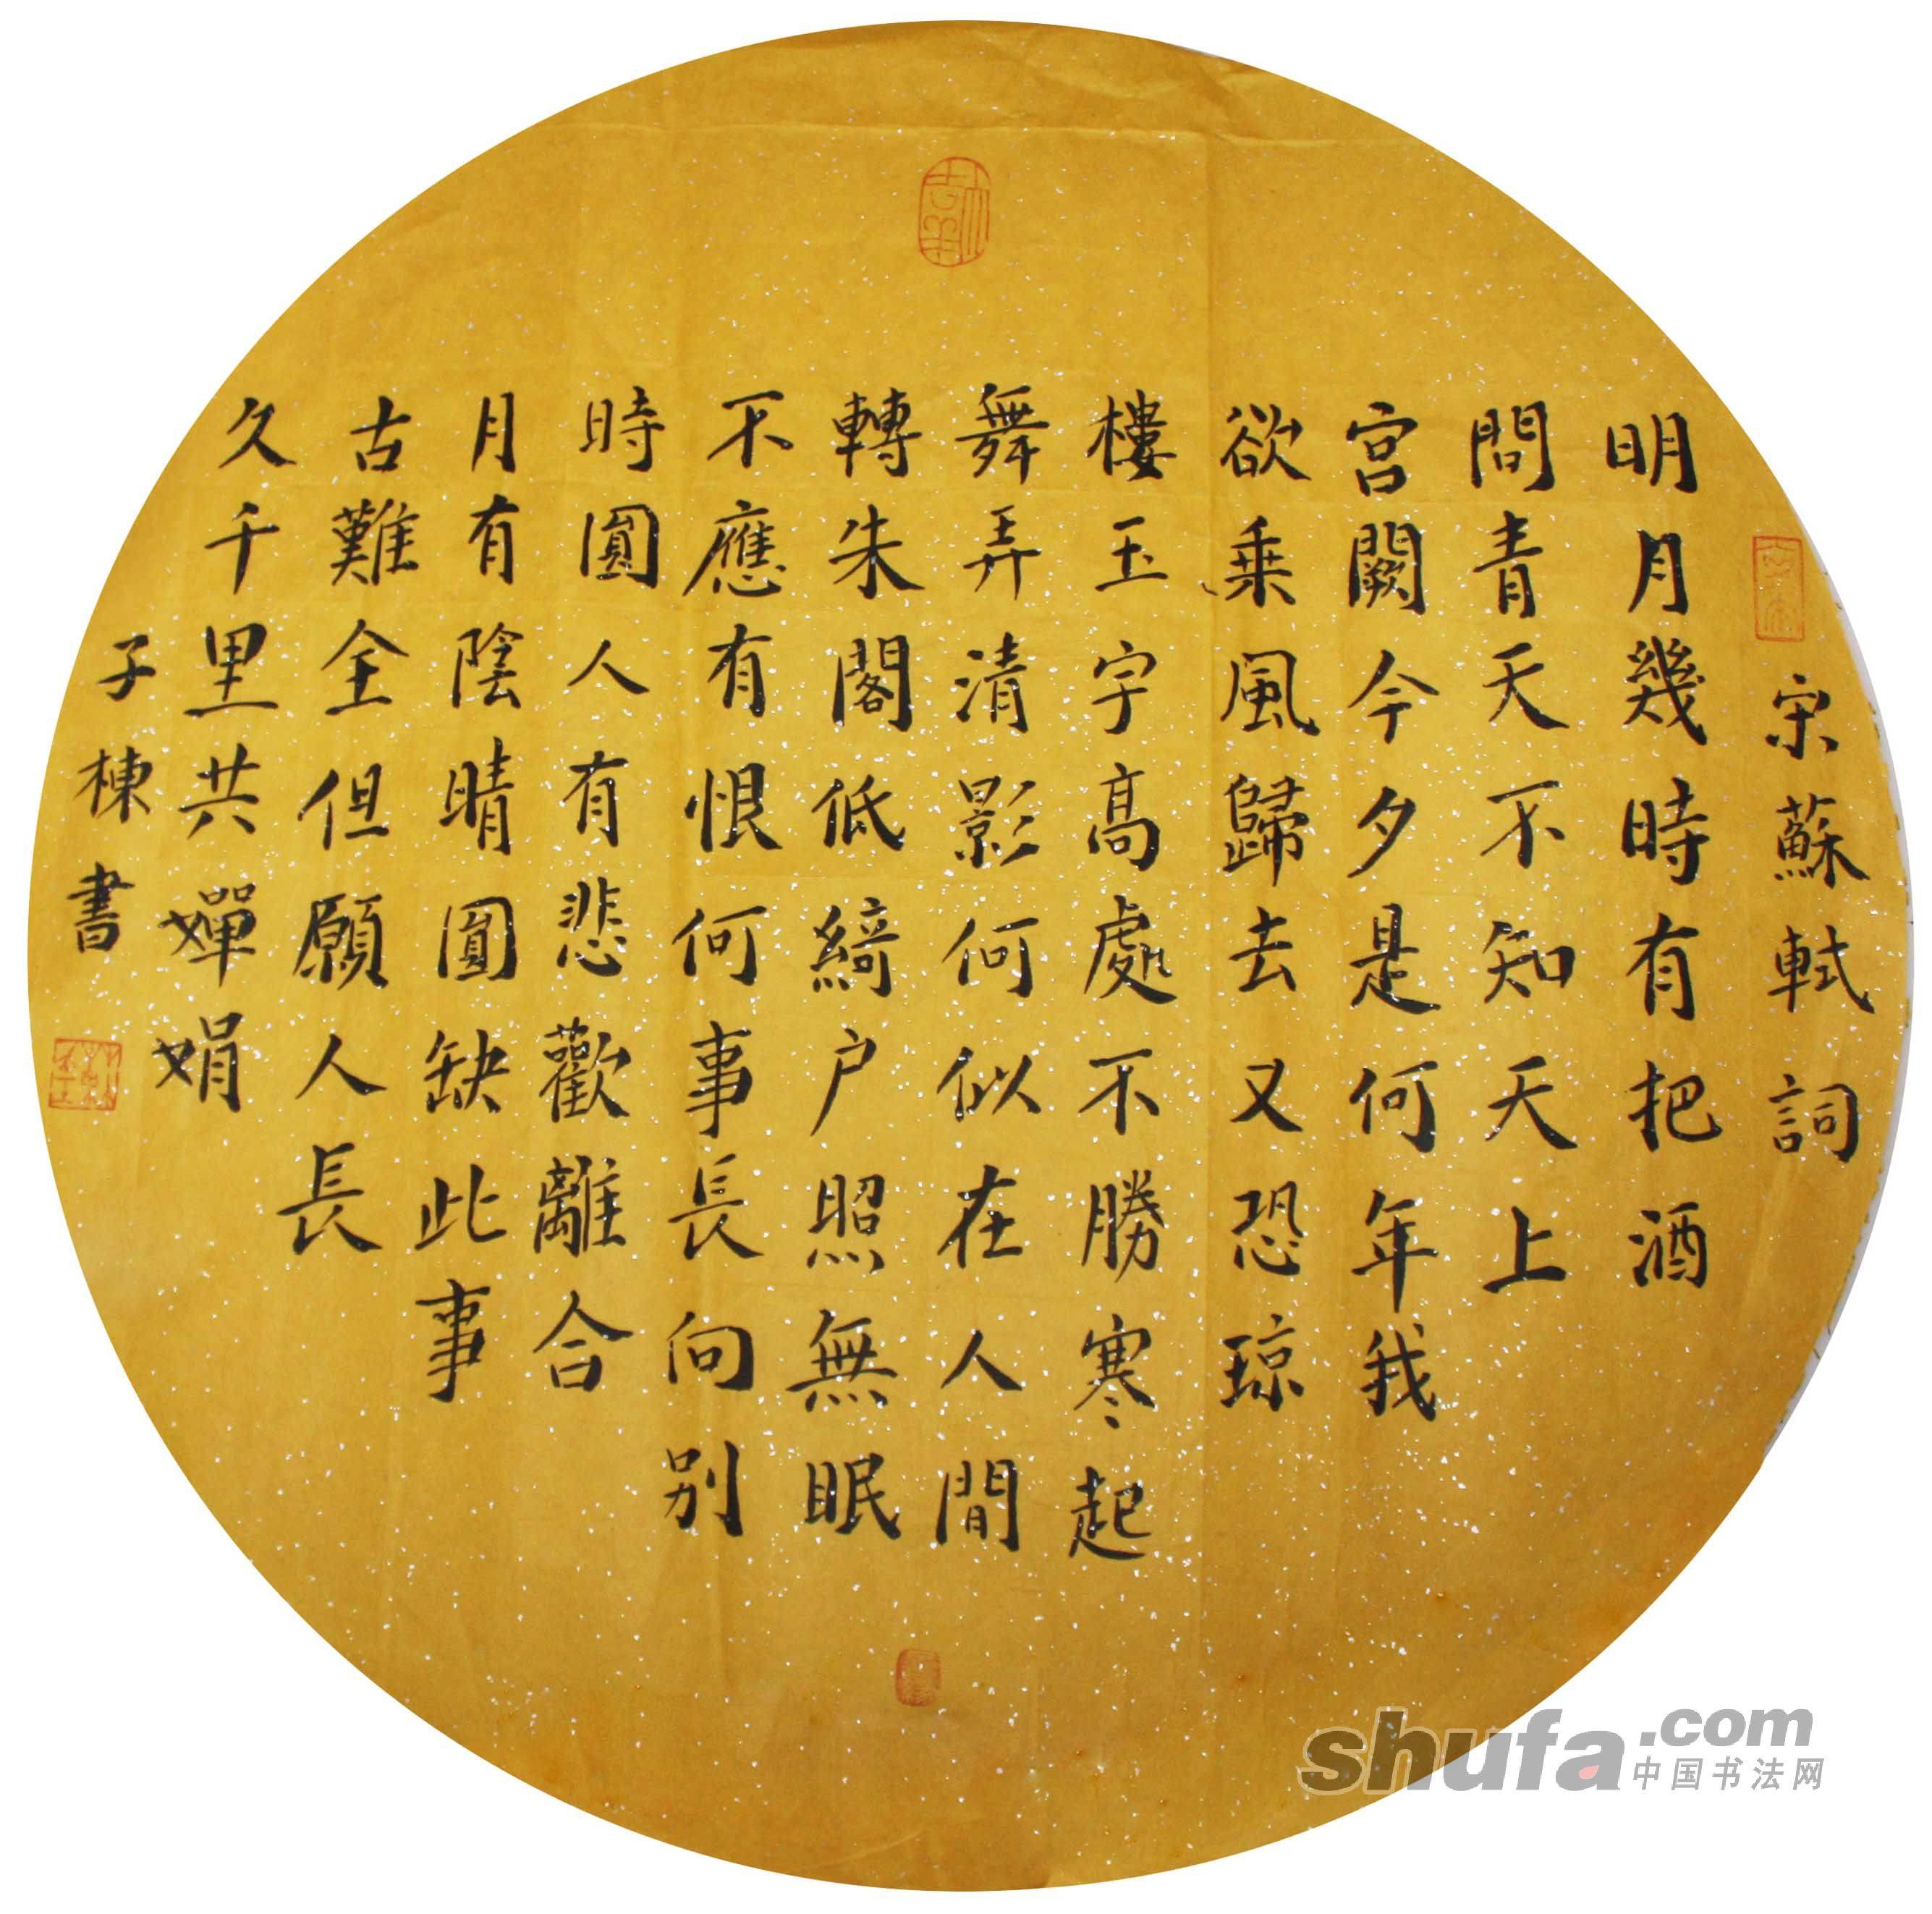 宋蘇軾詞
明月幾時有把酒
問青天不知天上
宮闕今夕是何年我
欲乗風歸去又恐琼
樓玉宇高處不勝寒起
舞弄清影何似在人間
轉朱閣低綺户照無眠
不應有恨何事長向别
時圓人有悲歡離合
月有陰晴圓缺此事
古難全但願人長
久千里共嬋娟
子棟書
shufa.com
中国书法网